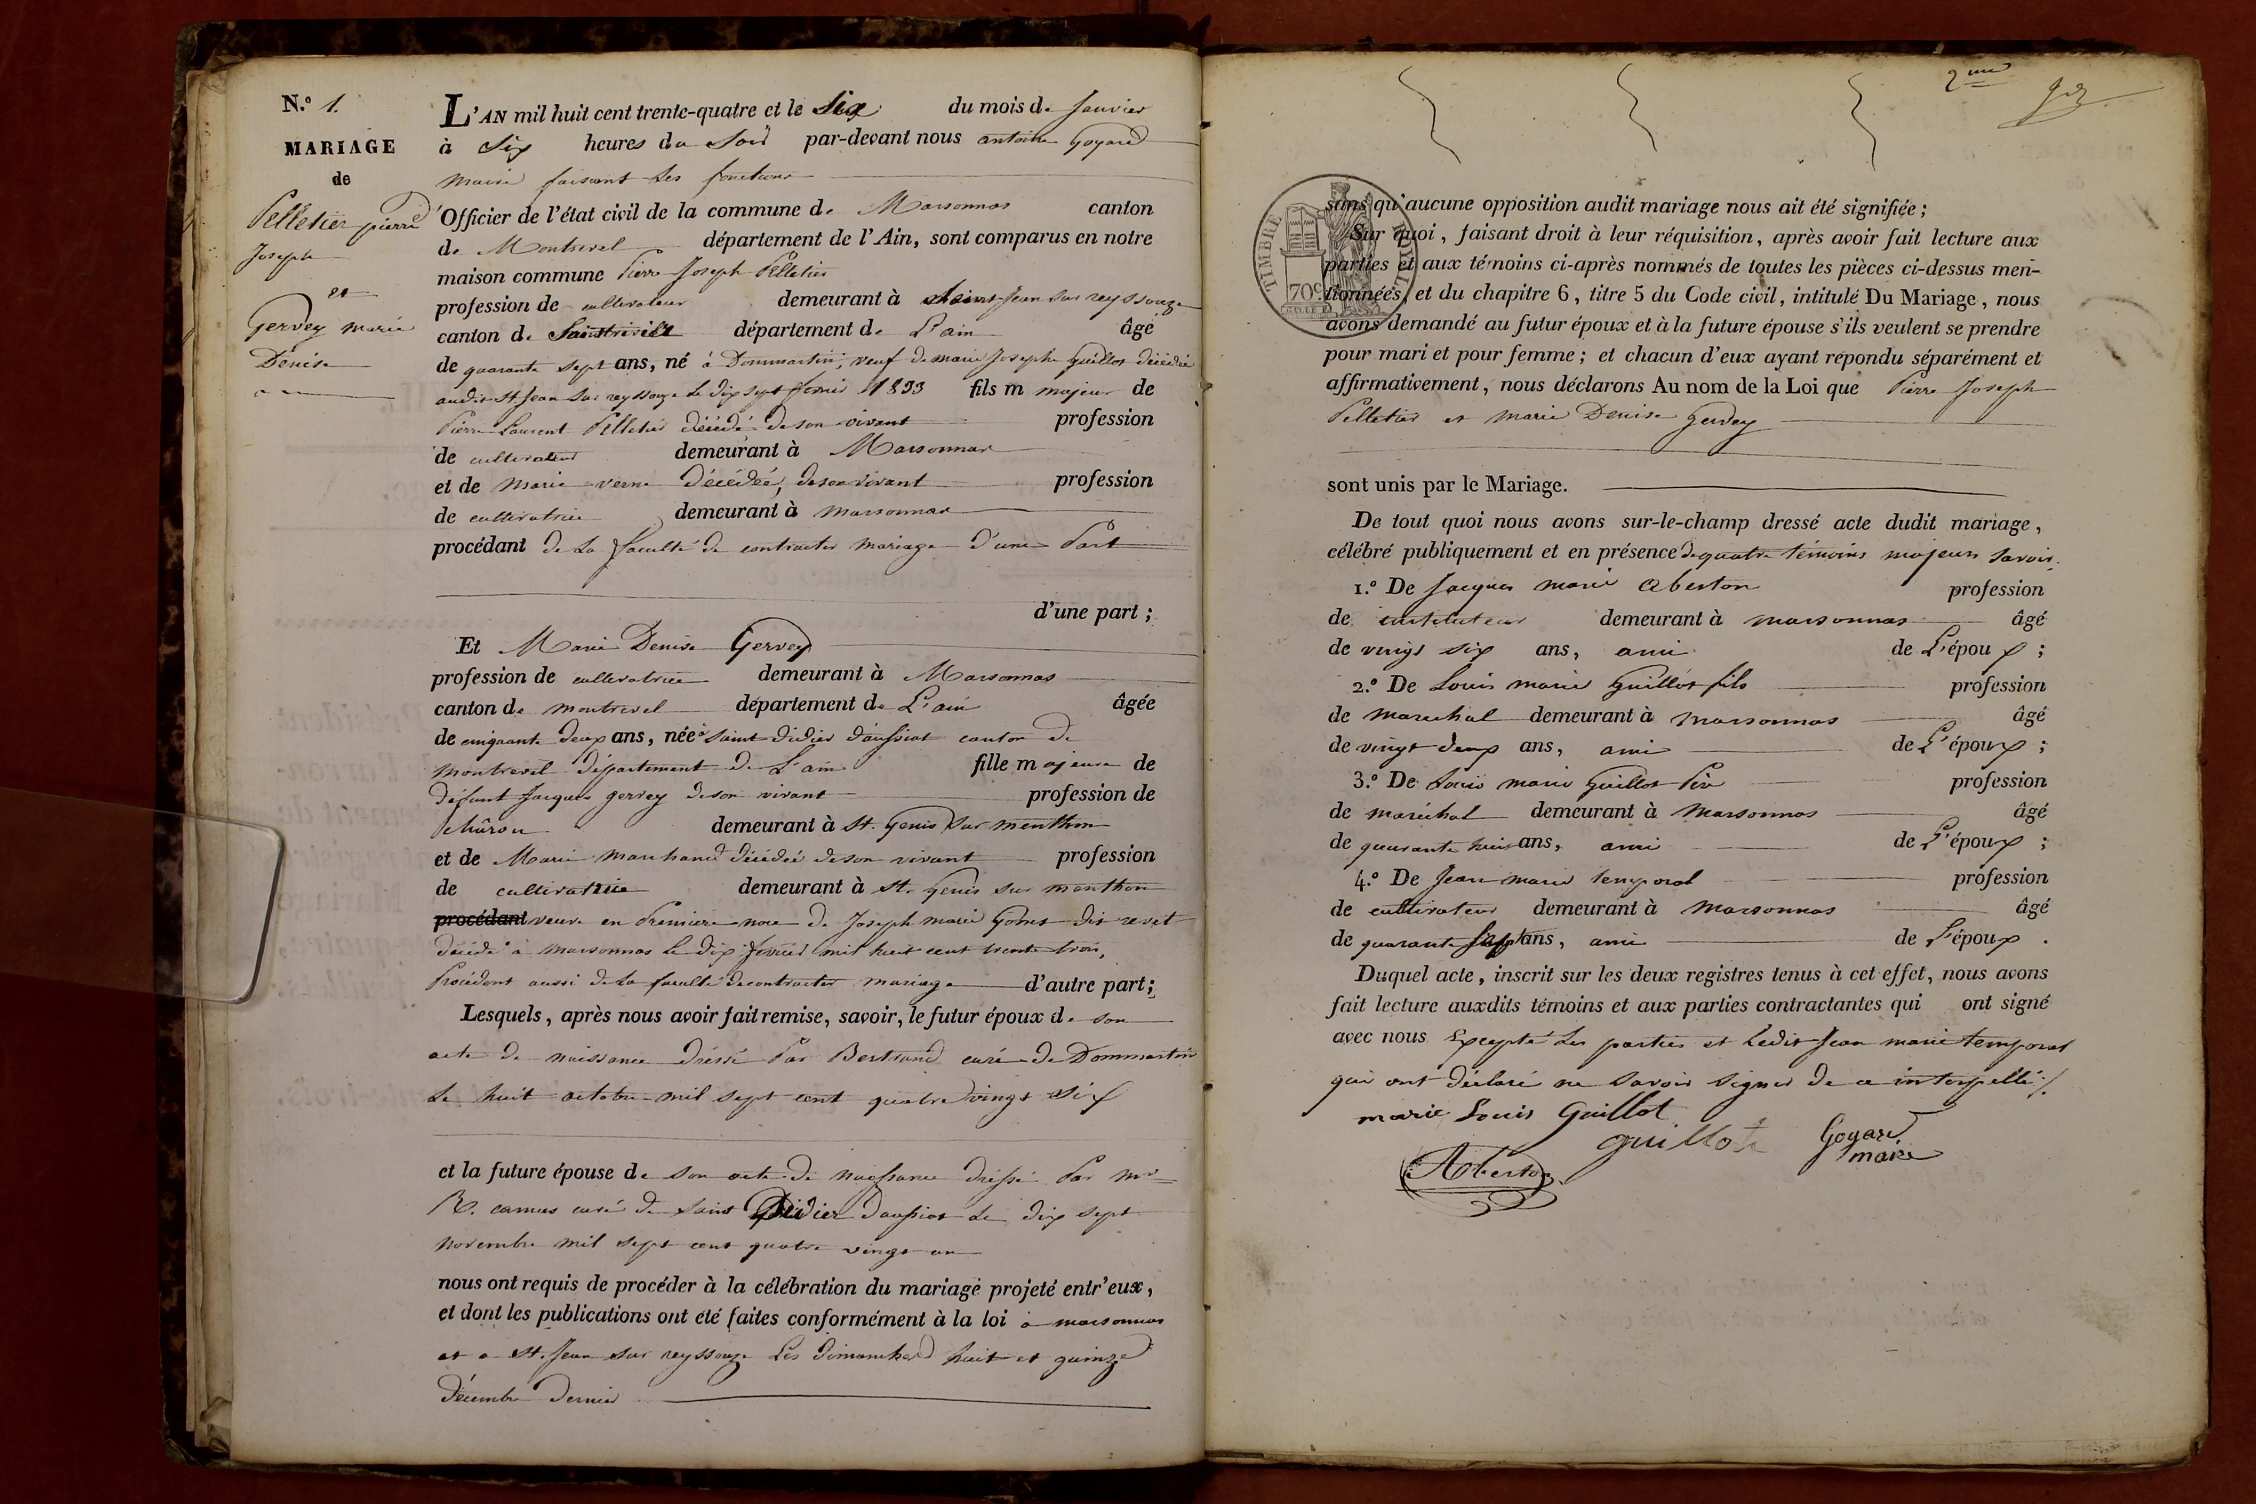 N.º 1.
MARIAGE
de
Pelletier pierre
Joseph
et
Gervey marie
Denise
L'AN mil huit cent trente-quatre et le Six du mois de Janvier
à Six heures du Soir par-devant nous antoine Goyard
maire faisant les fonctions
Officier de l'état civil de la commune de Marsonnas canton
de Montrevel département de l'Ain, sont comparus en notre
maison commune Pierre Joseph Pelletier
profession de cultivateur demeurant à Saint Jean sur reyssouze
canton de Saint trivier département de L'ain âgé
de quarante sept ans, né à Dommartin, veuf de marie Josephe Guillot décédée
audit St Jean sur reyssouze le dix sept fevrier 1833 fils majeur de
Pierre Laurent Pelletier décédé de son vivant profession
de cultivateur demeurant à Marsonnas
et de Marie verne décédée, de son vivant profession
de cultivatrice demeurant à marsonnas
procédant de la faculté de contracter mariage d'une Part
d'une part ;
Et Marie Denise Gervey
profession de cultivatrice demeurant à Marsonnas
canton de montrevel département de L'ain âgée
de cinquante deux ans, née à Saint didier d'aussiat canton de
montrevel département de L'ain fille majeure de
défunt Jacques gervey de son vivant profession de
charon demeurant à St. Genis sur menthon
et de Marie marchand décédée de son vivant profession
de cultivatrice demeurant à St. Genis sur menthon
procédant veuve en Premiere noce de Joseph marie dit
décédé à marsonnas le dix fevrier mil huit cent trente trois,
Procédent aussi de la faculté de contracter mariage d'autre part ;
Lesquels, après nous avoir fait remise, savoir, le futur époux de son
acte de naissance dréssé Par Bertrand curé de Dommartin
le huit octobre mil sept cent quatre vingt six
et la future épouse de son acte de naissance dréssé Par mr
R. camus curé de Saint Didier d'aussiat le dix sept
novembre mil sept cent quatre vingt un
nous ont requis de procéder à la célébration du mariage projeté entr'eux,
et dont les publications ont été faites conformément à la loi à marsonnas
et à St. Jean sur reyssouze Les dimanches huit et quinze
décembre dernier
2me
TIMBRE ROYAL
70c.
sans qu'aucune opposition audit mariage nous ait été signifiée ;
Sur quoi, faisant droit à leur réquisition, après avoir fait lecture aux
parties et aux témoins ci-après nommés de toutes les pièces ci-dessus men-
tionnées, et du chapitre 6, titre 5 du Code civil, intitulé Du Mariage, nous
avons demandé au futur époux et à la future épouse s'ils veulent se prendre
pour mari et pour femme ; et chacun d'eux ayant répondu séparément et
affirmativement, nous déclarons Au nom de la Loi que Pierre Joseph
Pelletier et marie Denise gervey
sont unis par le Mariage.
De tout quoi nous avons sur-le-champ dressé acte dudit mariage,
célébré publiquement et en présence de quatre témoins majeurs savoir.
1.º De Jacques marie Aberton profession
de instituteur demeurant à marsonnas âgé
de vingt six ans, ami de L'époux ;
2.º De Louis marie Guillot fils profession
de marechal demeurant à marsonnas âgé
de vingt deux ans, ami de L'époux ;
3.º De Louis marie Guillot Père profession
de maréchal demeurant à marsonnas âgé
de quarante huit ans, ami de L'époux ;
4.º De Jean marie temporal profession
de cultivateur demeurant à marsonnas âgé
de quarante Sept ans, ami de L'époux .
Duquel acte, inscrit sur les deux registres tenus à cet effet, nous avons
fait lecture auxdits témoins et aux parties contractantes qui ont signé
avec nous Excepté les parties et Ledit Jean marie temporal
qui ont déclaré ne Savoir Signer de ce interpellé ./.
marie Louis Guillot
guillot
Goyard
maire
Aberton